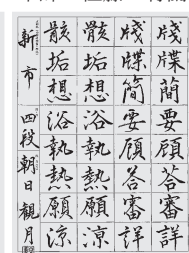 牋牒蕳要顧荅審詳
牋牒簡要顧荅審詳
骸垢想浴執熱願涼
骸垢想浴執熱願涼
新市 四段 朝日観月